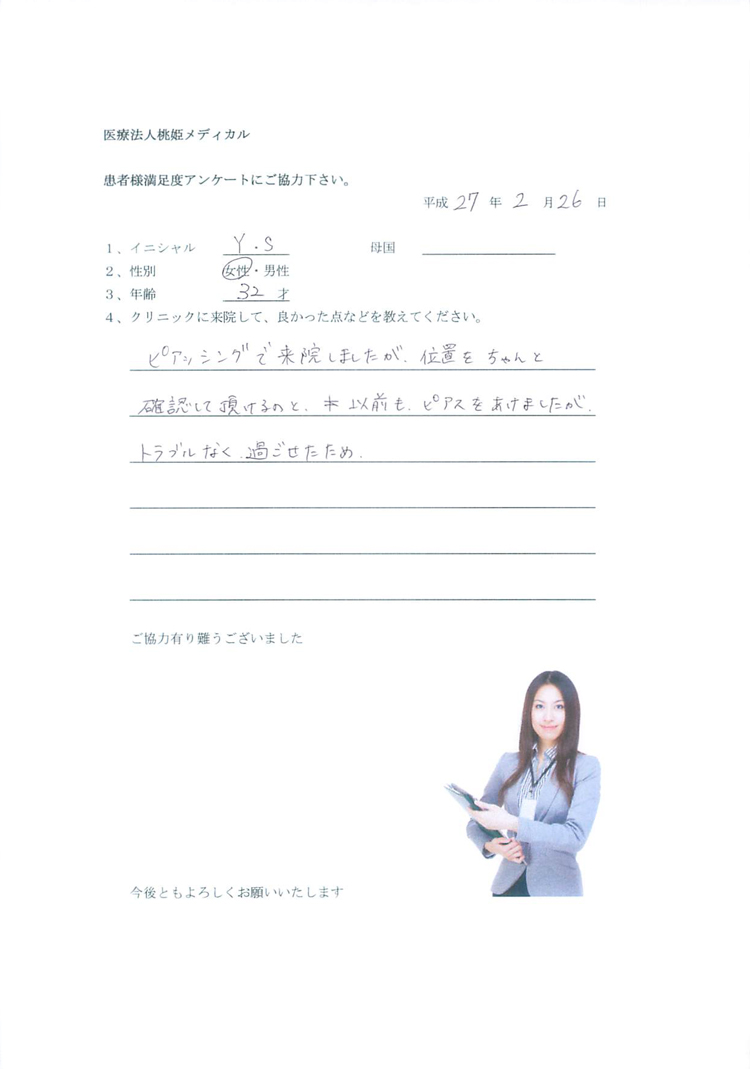 医療法人桃姫メディカル
患者様満足度アンケートにご協力下さい。
平成 27 年 2 月 26 日
1、イニシャル Y.S 母国
2、性別 女性・男性
3、年齢 32 才
4、クリニックに来院して、良かった点などを教えてください。
ピアッシングで来院しましたが、位置をちゃんと
確認して頂けるのと、以前も、ピアスをあけましたが、
トラブルなく、過ごせたため.
ご協力有り難うございました
今後ともよろしくお願いいたします